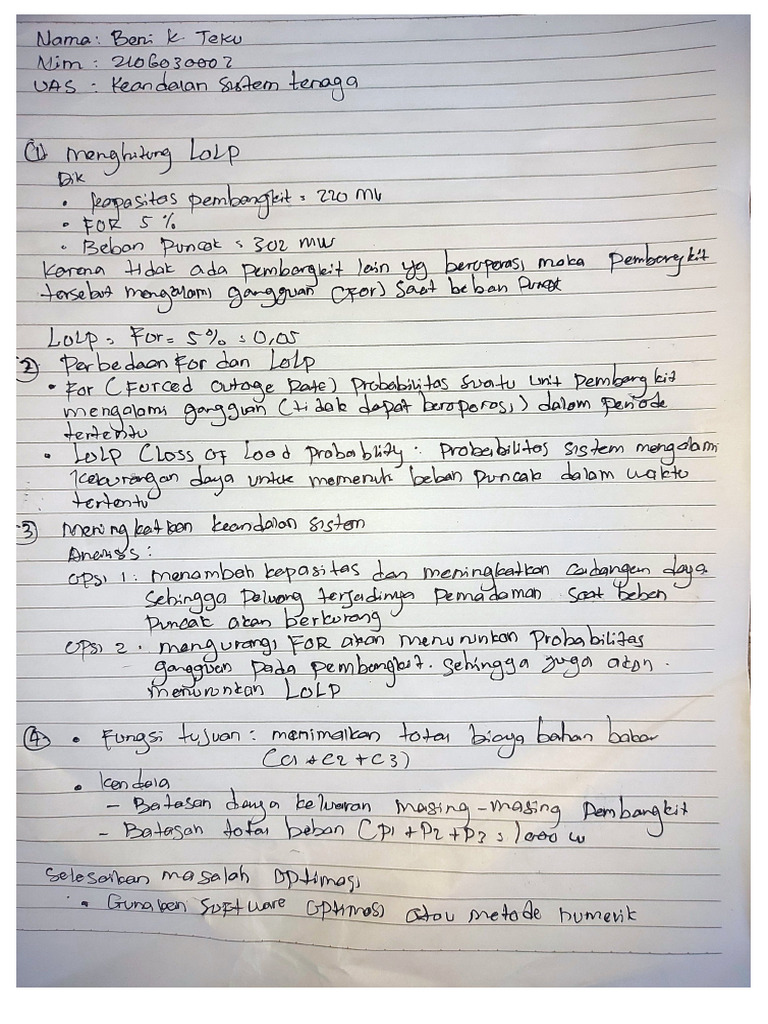 Nama : Beni K. Teku
Nim : 2106030002
UAS : Keandalan sistem tenaga
(1) menghitung LOLP
Dik
• kapasitas pembangkit = 220 MW
• FOR 5 %
• Beban Puncak = 302 MW
Karena tidak ada pembangkit lain yg beroperasi maka pembangkit
tersebut mengalami gangguan (FOR) saat beban puncak
LOLP = For = 5% = 0,05
(2) Perbedaan For dan LOLP
• For (Forced Outage Rate) Probabilitas suatu unit Pembangkit
mengalami gangguan (tidak dapat beroperasi) dalam periode
tertentu
• LOLP (Loss Of Load Probability : Probabilitas sistem mengalami
kekurangan daya untuk memenuhi beban puncak dalam waktu
tertentu
(3) Meningkatkan keandalan sistem
Analisis :
Opsi 1 : menambah kapasitas dan meningkatkan cadangan daya
sehingga peluang terjadinya pemadaman saat beban
puncak akan berkurang
Opsi 2 . mengurangi FOR akan menurunkan Probabilitas
gangguan pada pembangkit. sehingga juga akan
menurunkan LOLP
(4) • Fungsi tujuan : menimalkan total biaya bahan bakar
(C1 + C2 + C3)
• Kendala
- Batasan daya keluaran masing-masing Pembangkit
- Batasan total beban (P1 + P2 + P3 = 1000 W
Selesaikan masalah Optimasi
• Gunakan Software Optimasi atau metode numerik